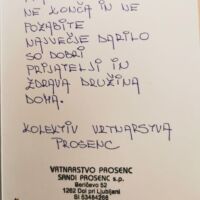 NE KONČA IN NE
POZABITE
NAJVEČJE DARILO
SO DOBRI
PRIJATELJI IN
ZDRAVA DRUŽINA
DOMA.
KOLEKTIV VRTNARSTVA
PROSENC
VRTNARSTVO PROSENC
SANDI PROSENC s.p.
Beričevo 52
1262 Dol pri Ljubljani
SI 53484268